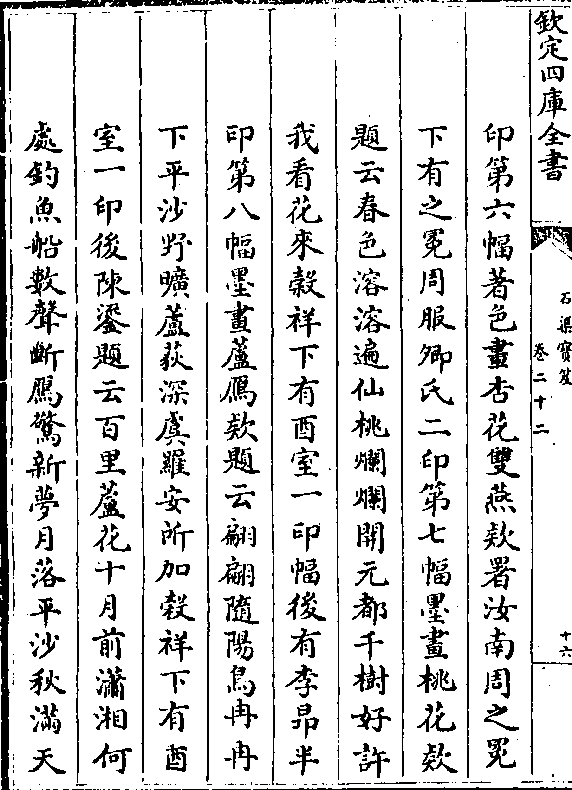 欽定四庫全書
石渠寶笈
卷二十二
十六
印第六幅著色畫杏花雙燕欵署汝南周之冕
下有之冕周服卿氏二印第七幅墨畫桃花欵
題云春色溶溶遍仙桃爛爛開元都千樹好許
我看花來榖祥下有酉室一印幅後有李昂半
印第八幅墨畫蘆鴈欵題云翩翩隨陽鳥冉冉
下平沙野曠蘆荻深虞羅安所加榖祥下有酉
室一印後陳鎏題云百里蘆花十月前瀟湘何
處釣魚船數聲斷鴈驚新夢月落平沙秋滿天